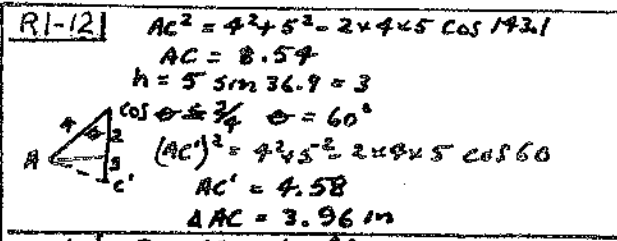 R1-12 AC² = 4² + 5² - 2×4×5 cos 143.1
AC = 8.54
h = 5 sin 36.9 = 3
cos θ = 2/4 θ = 60°
4 θ 2
A 3
C'
(AC')² = 4² + 5² - 2×4×5 cos 60
AC' = 4.58
ΔAC = 3.96 in